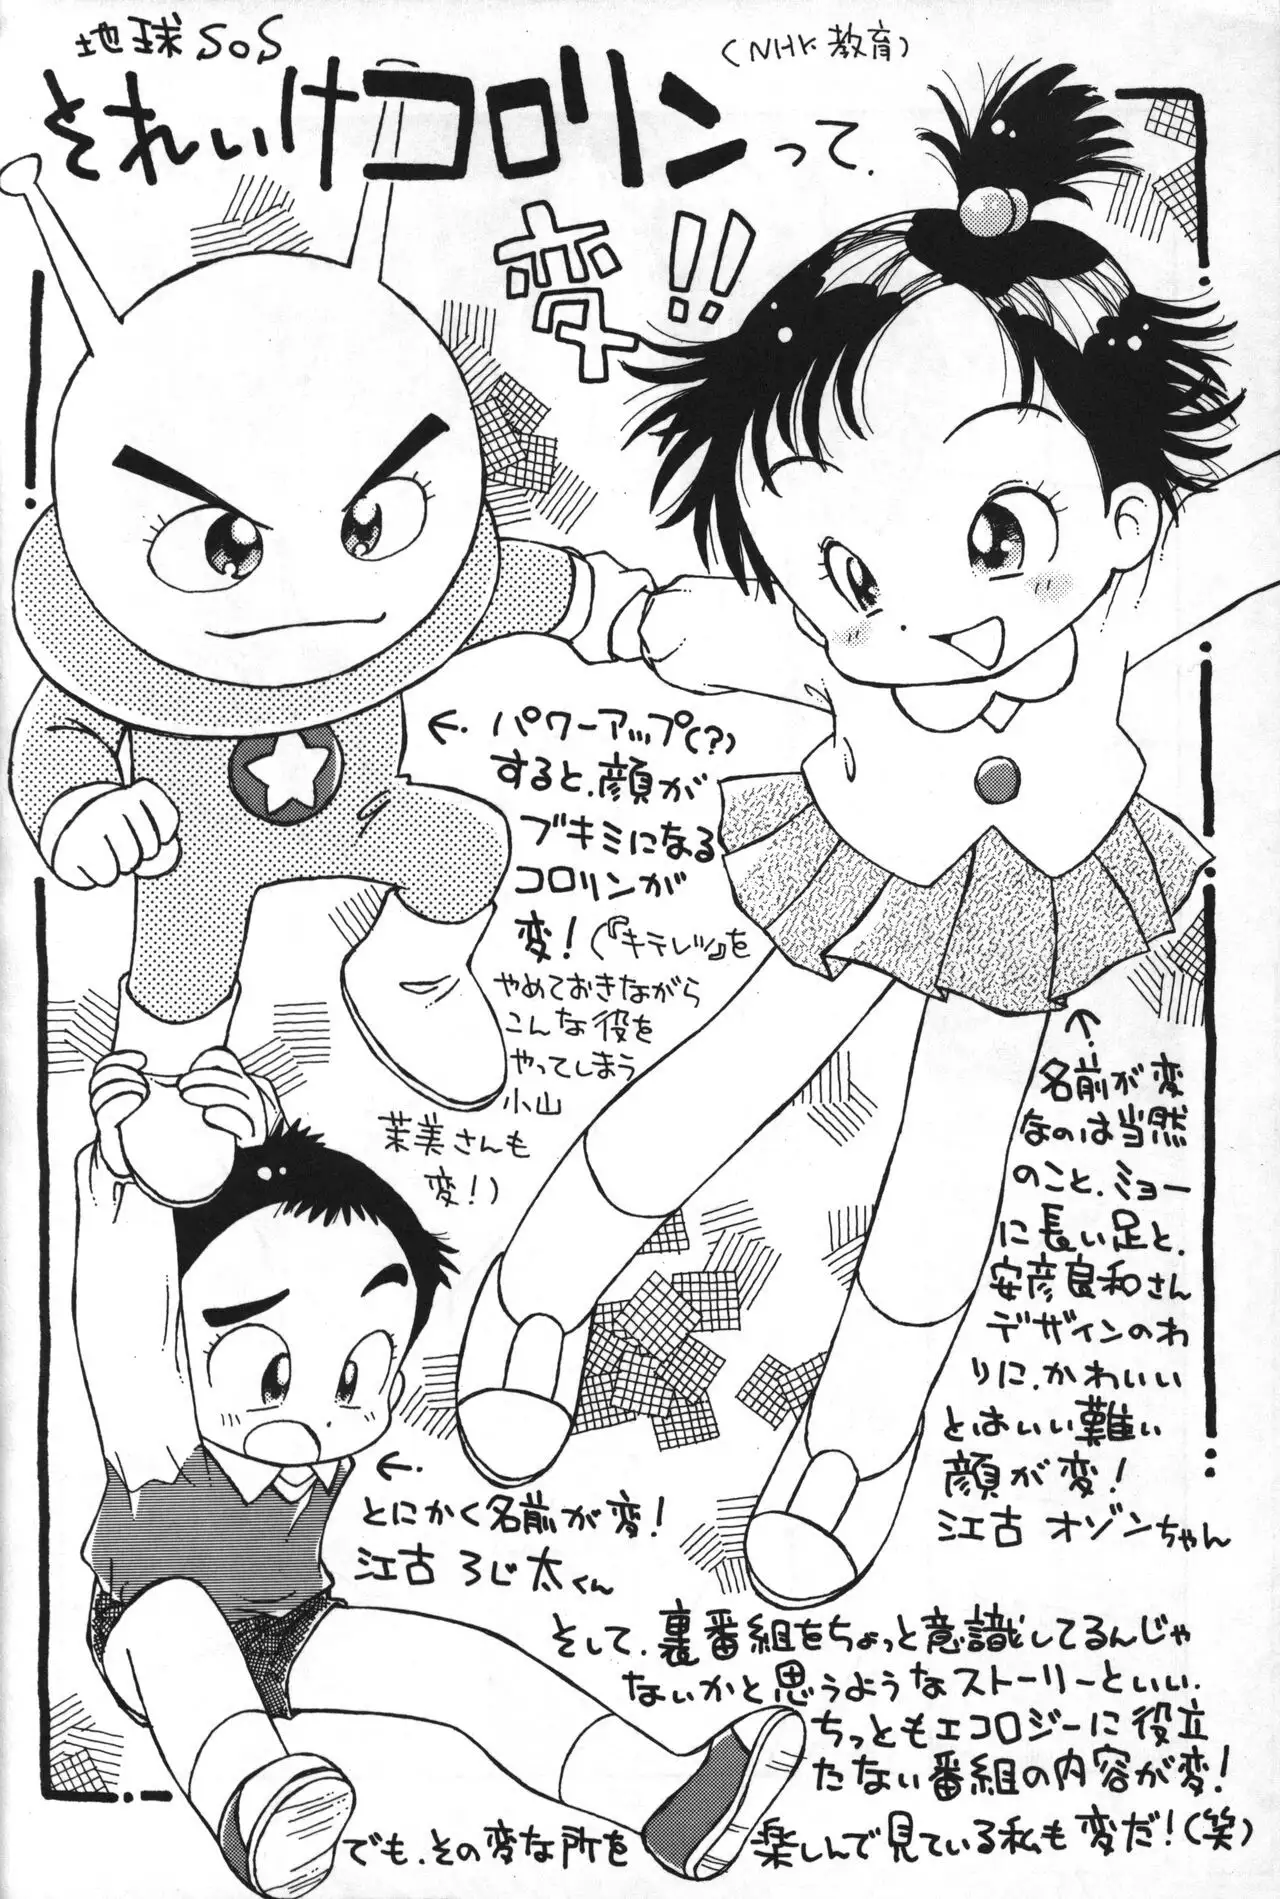 地球SOS
(NHK教育)
それいけコロリンって.
変!!
←. パワーアップ(?)
すると.顔が
ブキミになる
コロリンが
変!(『キテレツ』を
やめておきながら
こんな役を
やってしまう
小山
茉美さんも
変!)
↑.
名前が変
なのは当然
のこと.ミョー
に長い足と.
安彦良和さん
デザインのわ
りに.かわいい
とはいい難い
顔が変!
江古 オゾンちゃん
←.
とにかく名前が変!
江古 ろじ太くん
そして.裏番組をちょっと意識してるんじゃ
ないかと思うようなストーリーといい.
ちっともエコロジーに役立
たない番組の内容が変!
でも.その変な所を 楽しんで見ている私も変だ!(笑)